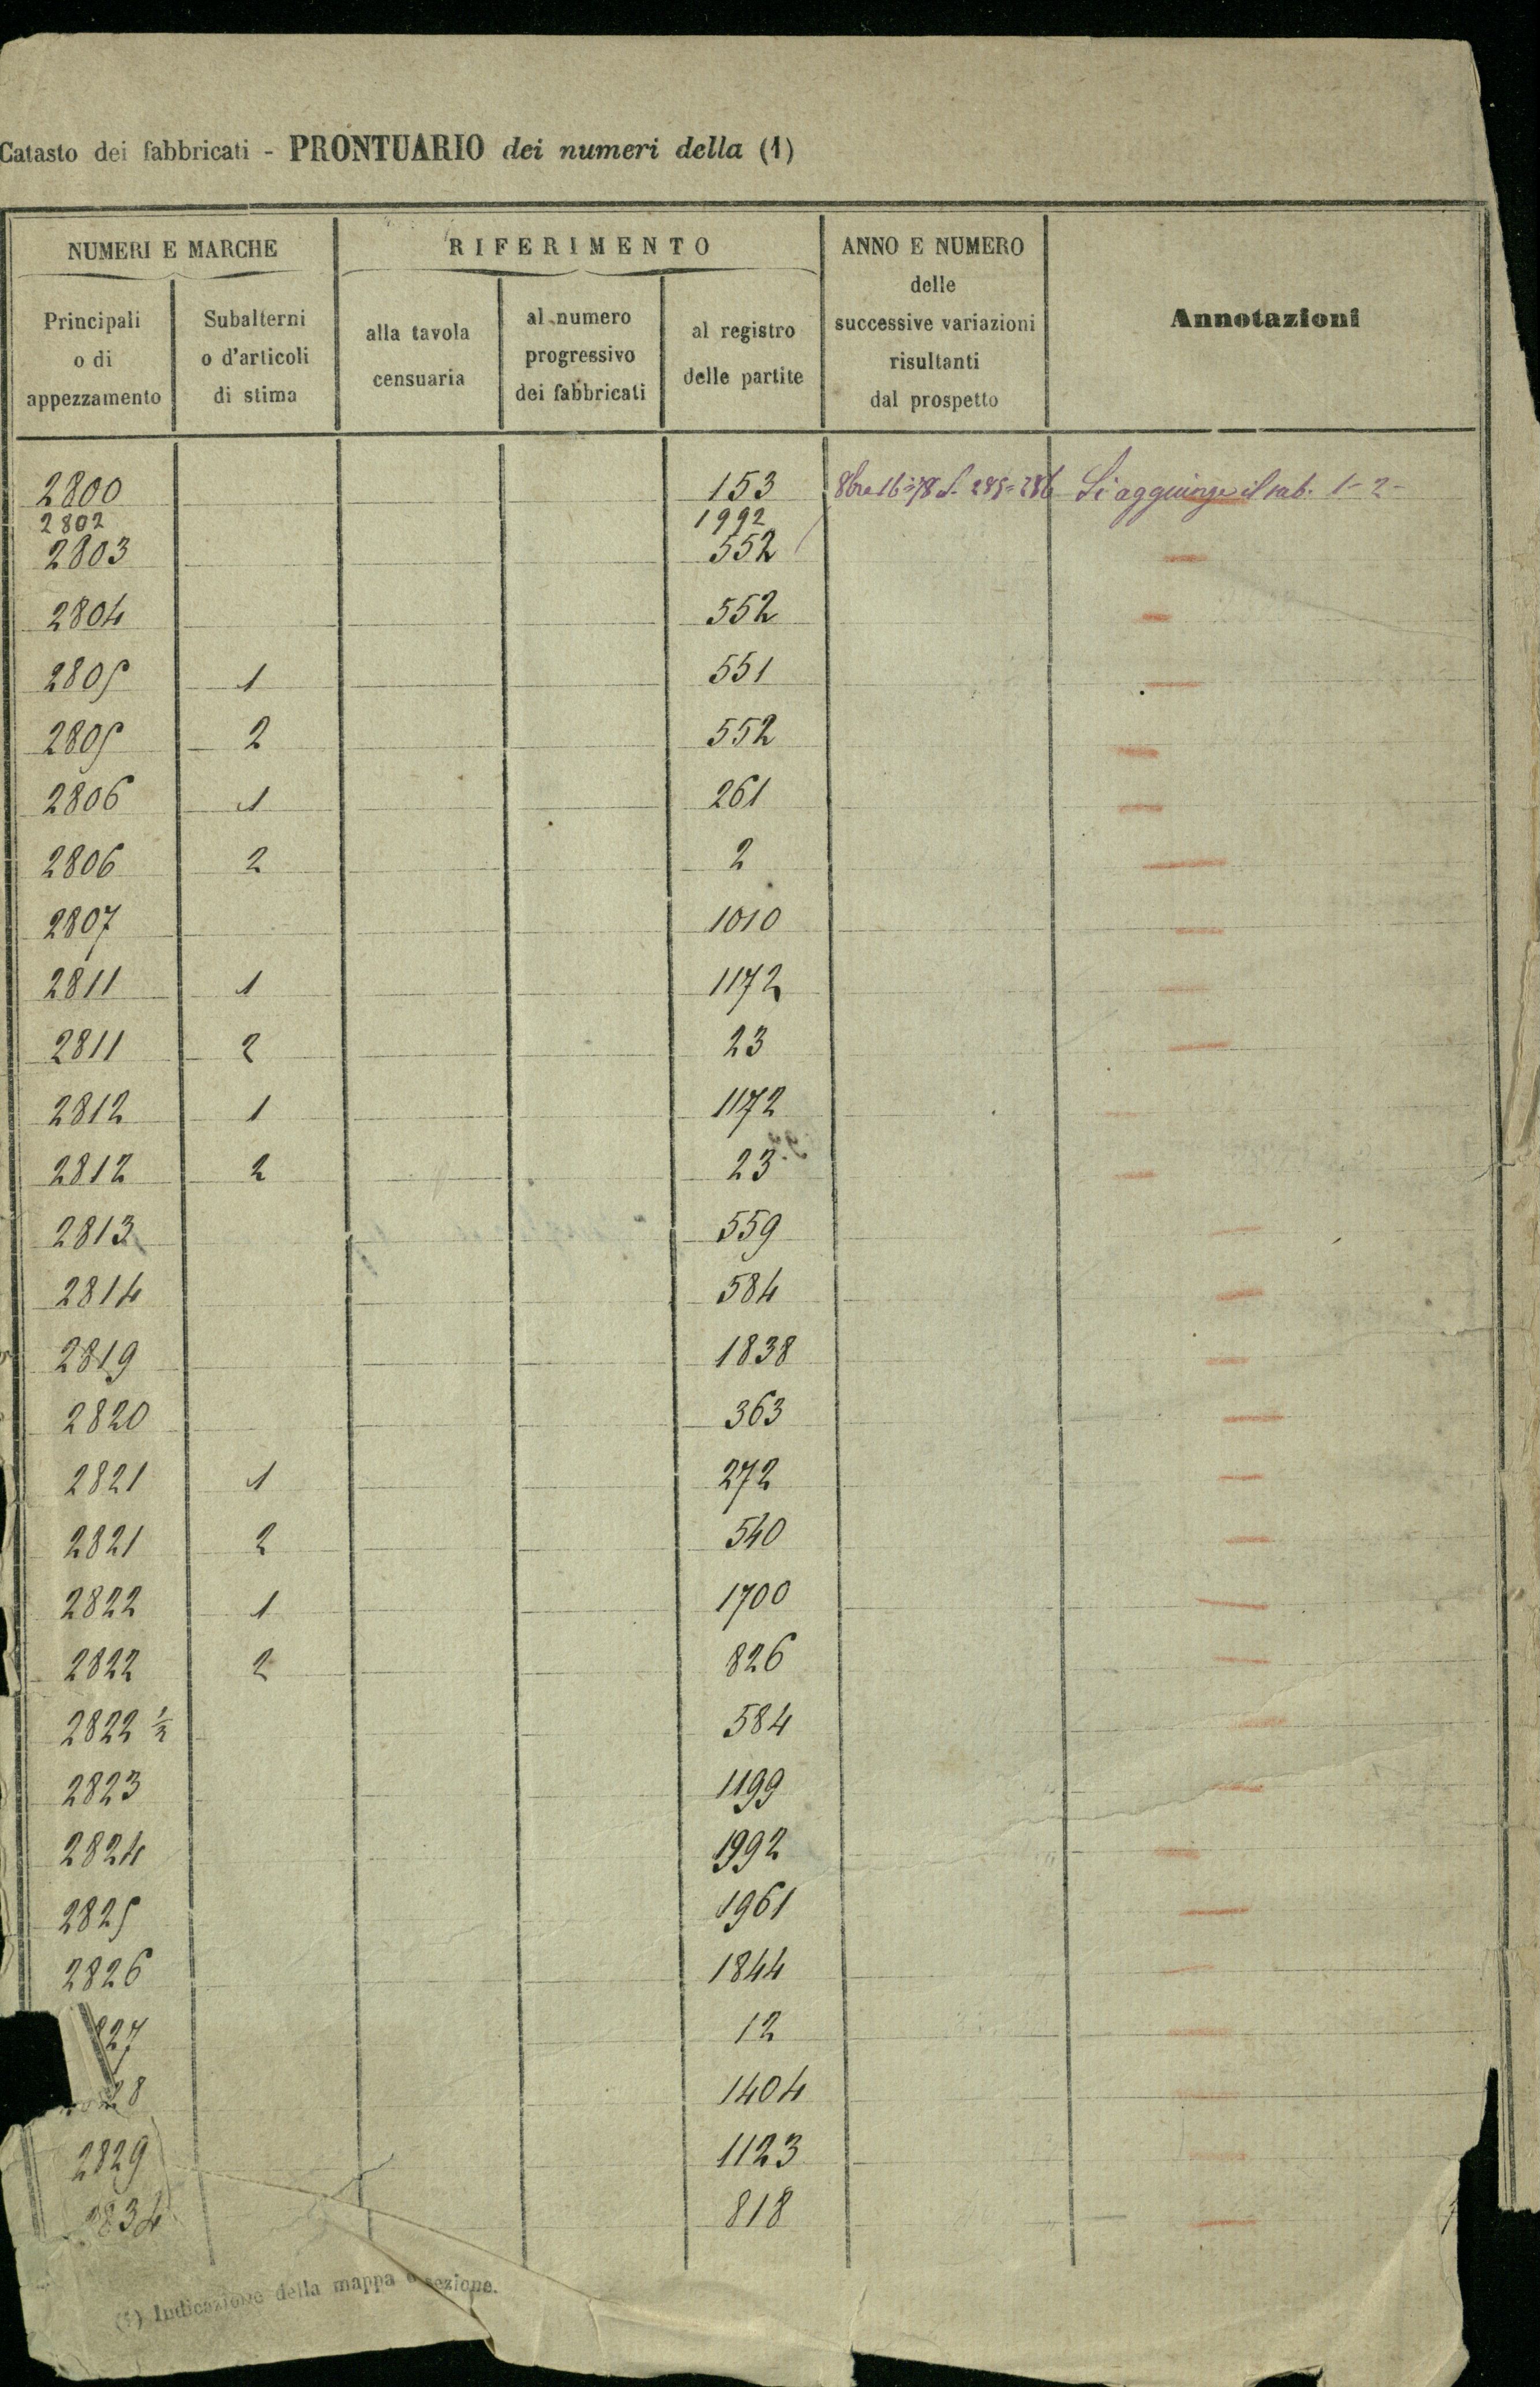 Catasto dei fabbricati - PRONTUARIO dei numeri della (1)
NUMERI E MARCHE
RIFERIMENTO
ANNO E NUMERO
delle
successive variazioni
risultanti
dal prospetto
Annotazioni
Principali
o di
appezzamento
Subalterni
o d'articoli
di stima
alla tavola
censuaria
al numero
progressivo
dei fabbricati
al registro
delle partite
2800 153 8bre 16 78 Si aggiunge il sub. 1-2-
2802 1992
2803 552
2804 552
2805 1 551
2805 2 552
2806 1 261
2806 2 2
2807 1010
2811 1 1172
2811 2 23
2812 1 1172
2812 2 23
2813 559
2814 584
2819 1838
2820 363
2821 1 272
2821 2 540
2822 1 1700
2822 2 826
2822 ½ 584
2823 1199
2824 1992
2825 1961
2826 1844
827 12
28 1404
2829 1123
2834 818
(1) Indicazione della mappa o sezione.